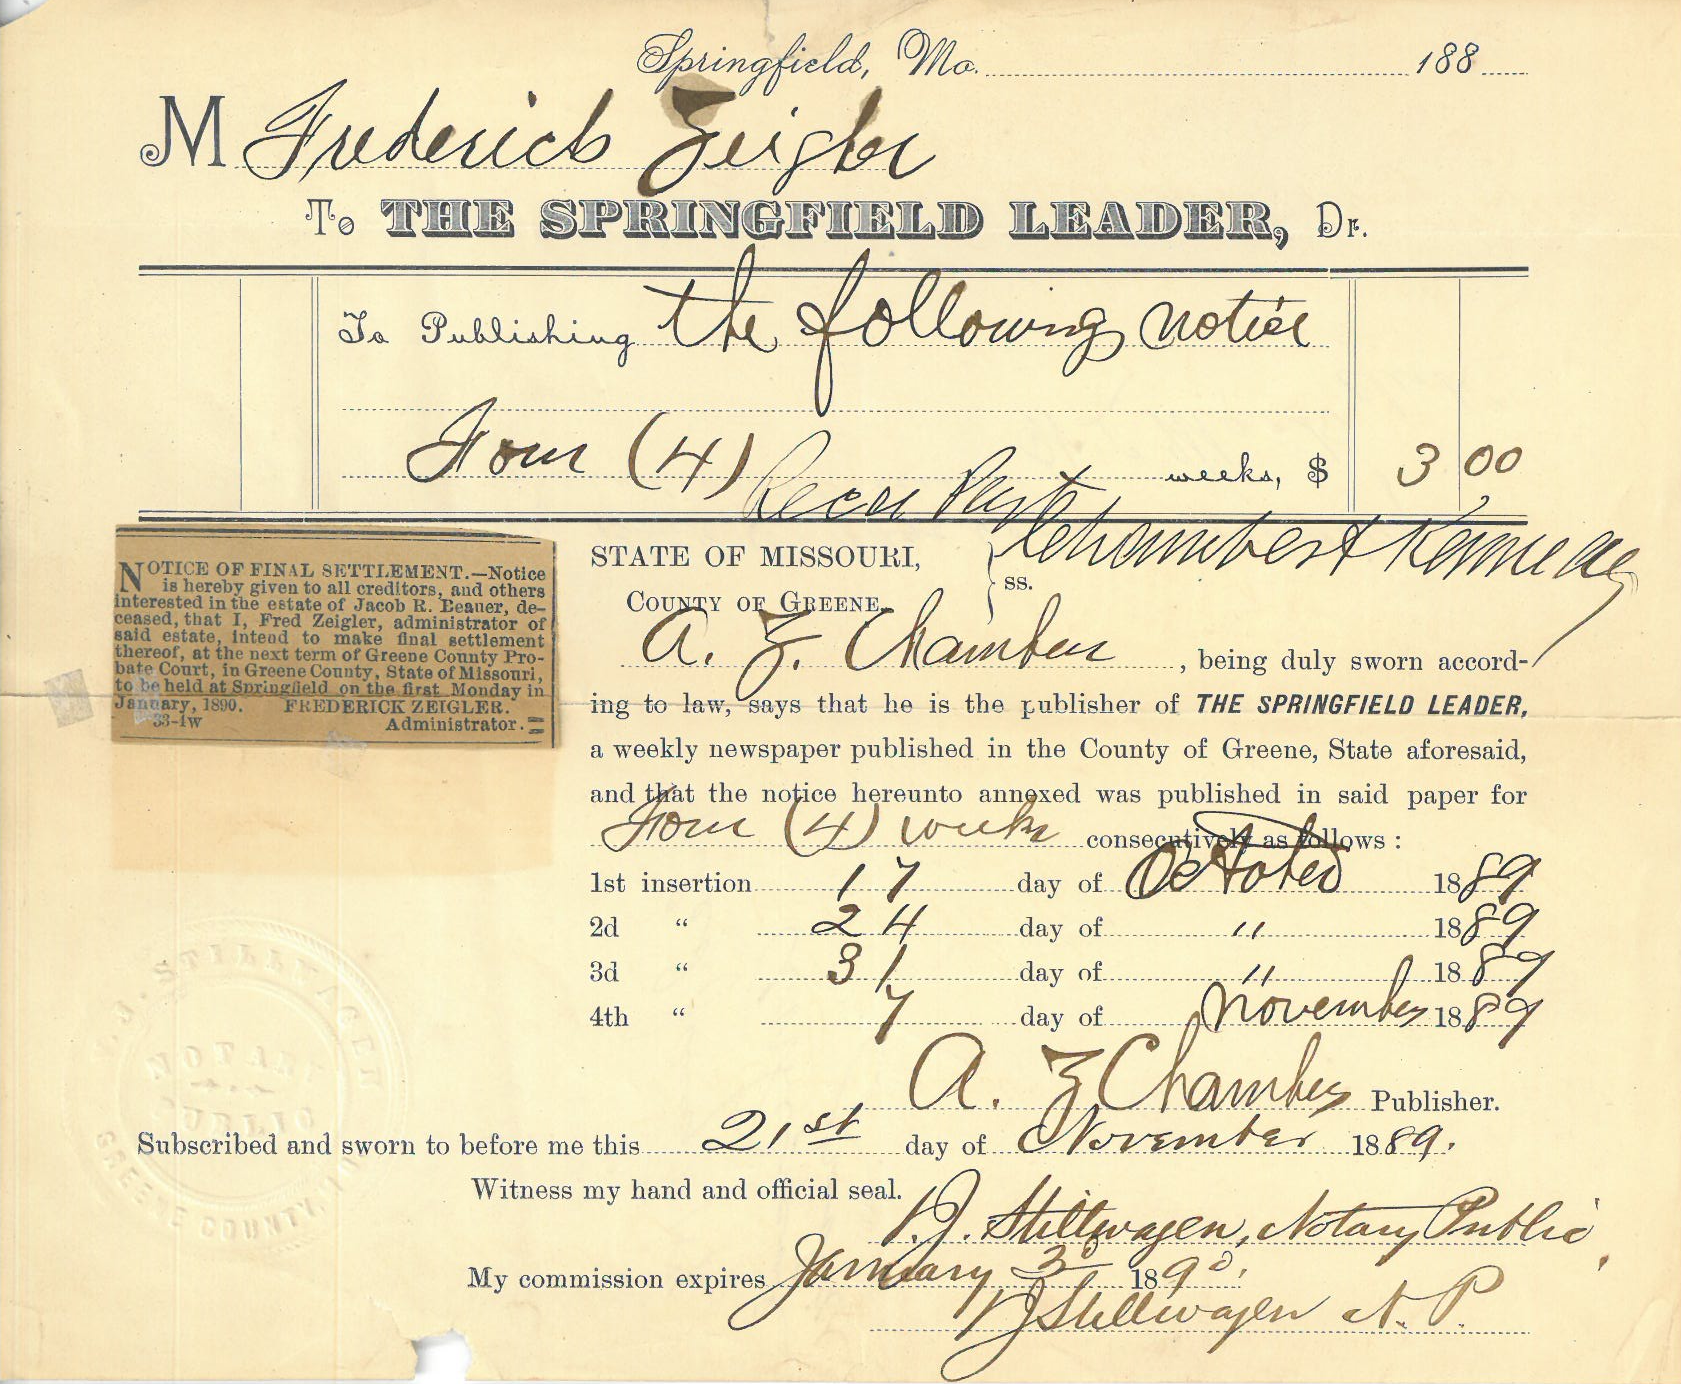 Springfield, Mo. 188
M Frederick Zeigler
To THE SPRINGFIELD LEADER, Dr.
To Publishing the following notice
Four (4) weeks, $ 3 00
Chambers & Kennedy
NOTICE OF FINAL SETTLEMENT.—Notice
is hereby given to all creditors, and others
interested in the estate of Jacob R. Beauer, de-
ceased, that I, Fred Zeigler, administrator of
said estate, intend to make final settlement
thereof, at the next term of Greene County Pro-
bate Court, in Greene County, State of Missouri,
to be held at Springfield on the first Monday in
January, 1890. FREDERICK ZEIGLER.
33-1w Administrator.
STATE OF MISSOURI,
COUNTY OF GREENE. ss.
A. Z. Chambers, being duly sworn accord-
ing to law, says that he is the publisher of THE SPRINGFIELD LEADER,
a weekly newspaper published in the County of Greene, State aforesaid,
and that the notice hereunto annexed was published in said paper for
Four (4) weeks consecutively as follows:
1st insertion 17 day of October 1889
2d " 24 day of " 1889
3d " 31 day of " 1889
4th " 7 day of November 1889
A. Z. Chambers Publisher.
Subscribed and sworn to before me this 21st day of November 1889.
Witness my hand and official seal.
Stillwagen, Notary Public
My commission expires January 3d 1890.
Stillwagen N. P.
STILLWAGEN
NOTARY
PUBLIC
GREENE COUNTY,